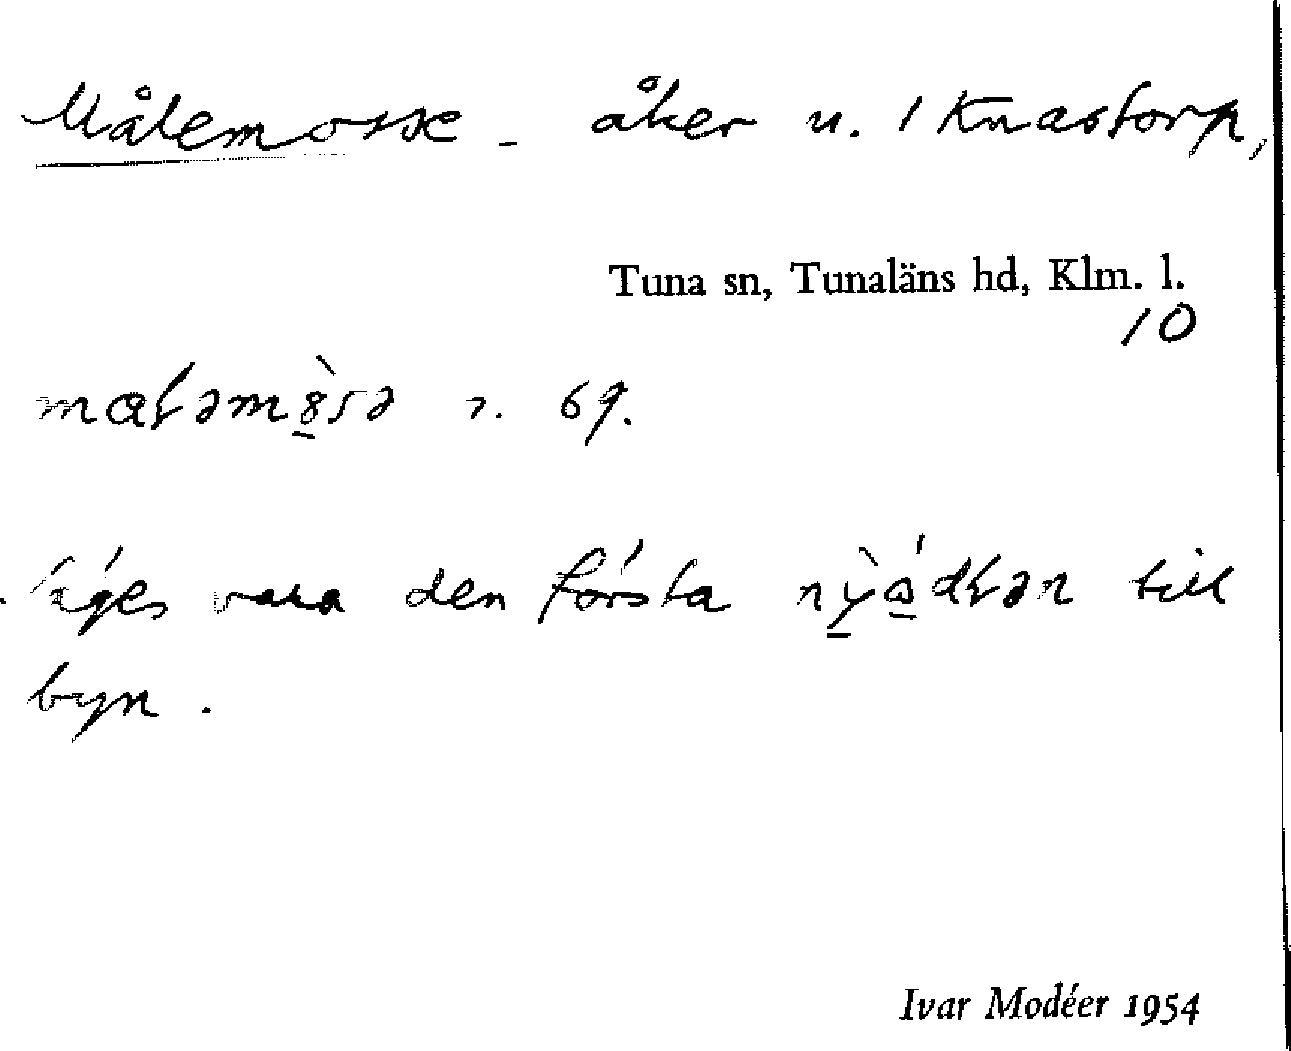 Målemosse - åker u. 1 Knastorp,
Tuna sn, Tunaläns hd, Klm. l.
10
69.
säges vara den första till
byn.
Ivar Modéer 1954